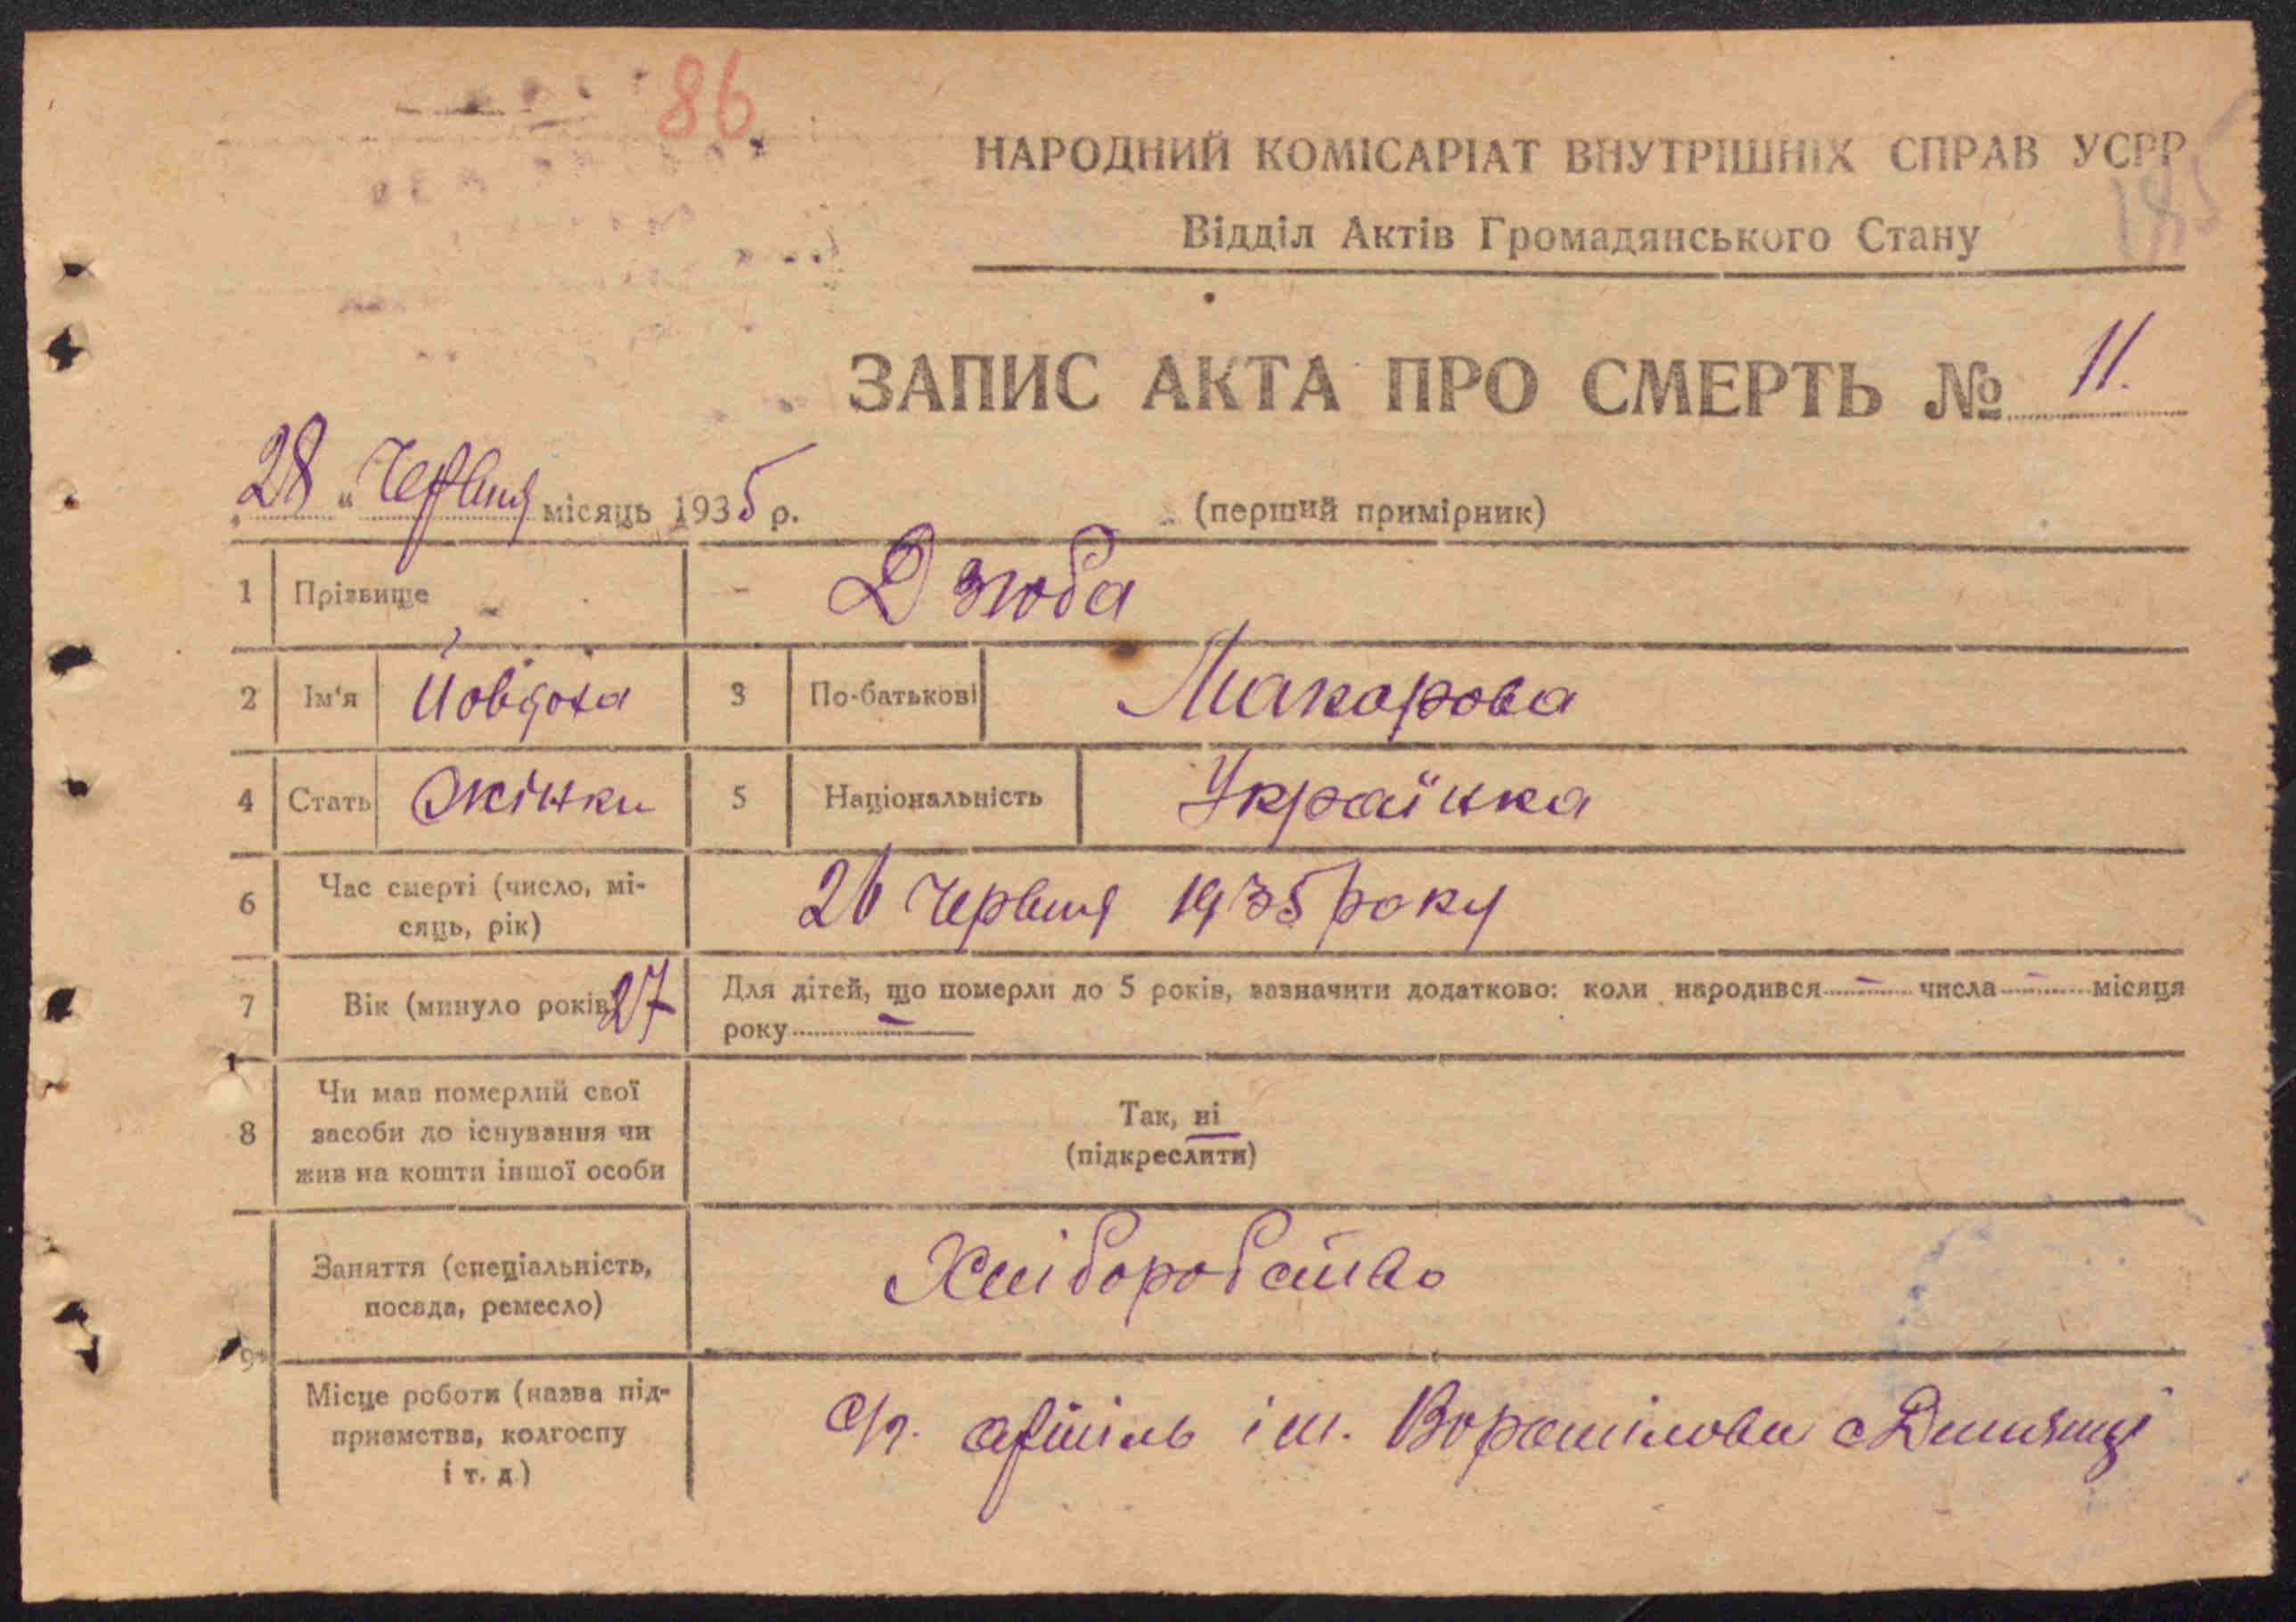 86
НАРОДНИЙ КОМІСАРІАТ ВНУТРІШНІХ СПРАВ УСРР
185
Відділ Актів Громадянського Стану
ЗАПИС АКТА ПРО СМЕРТЬ № 11.
„28“ Червня місяць 1935 р. (перший примірник)
1 Прізвище Дзюба
2 Ім'я Йовдоха 3 По-батькові Макарова
4 Стать Жінки 5 Національність Українка
6 Час смерті (число, мі-
сяць, рік) 26 Червня 1935 року
7 Вік (минуло років) 27 Для дітей, що померли до 5 років, зазначити додатково: коли народився — числа — місяця
року —
8 Чи мав померлий свої
засоби до існування чи
жив на кошти іншої особи
Так, ні
(підкреслити)
9 Заняття (спеціальність,
посада, ремесло) Хліборобство
Місце роботи (назва під-
приємства, колгоспу
і т. д.)
с/г. артіль ім. Ворошілова с